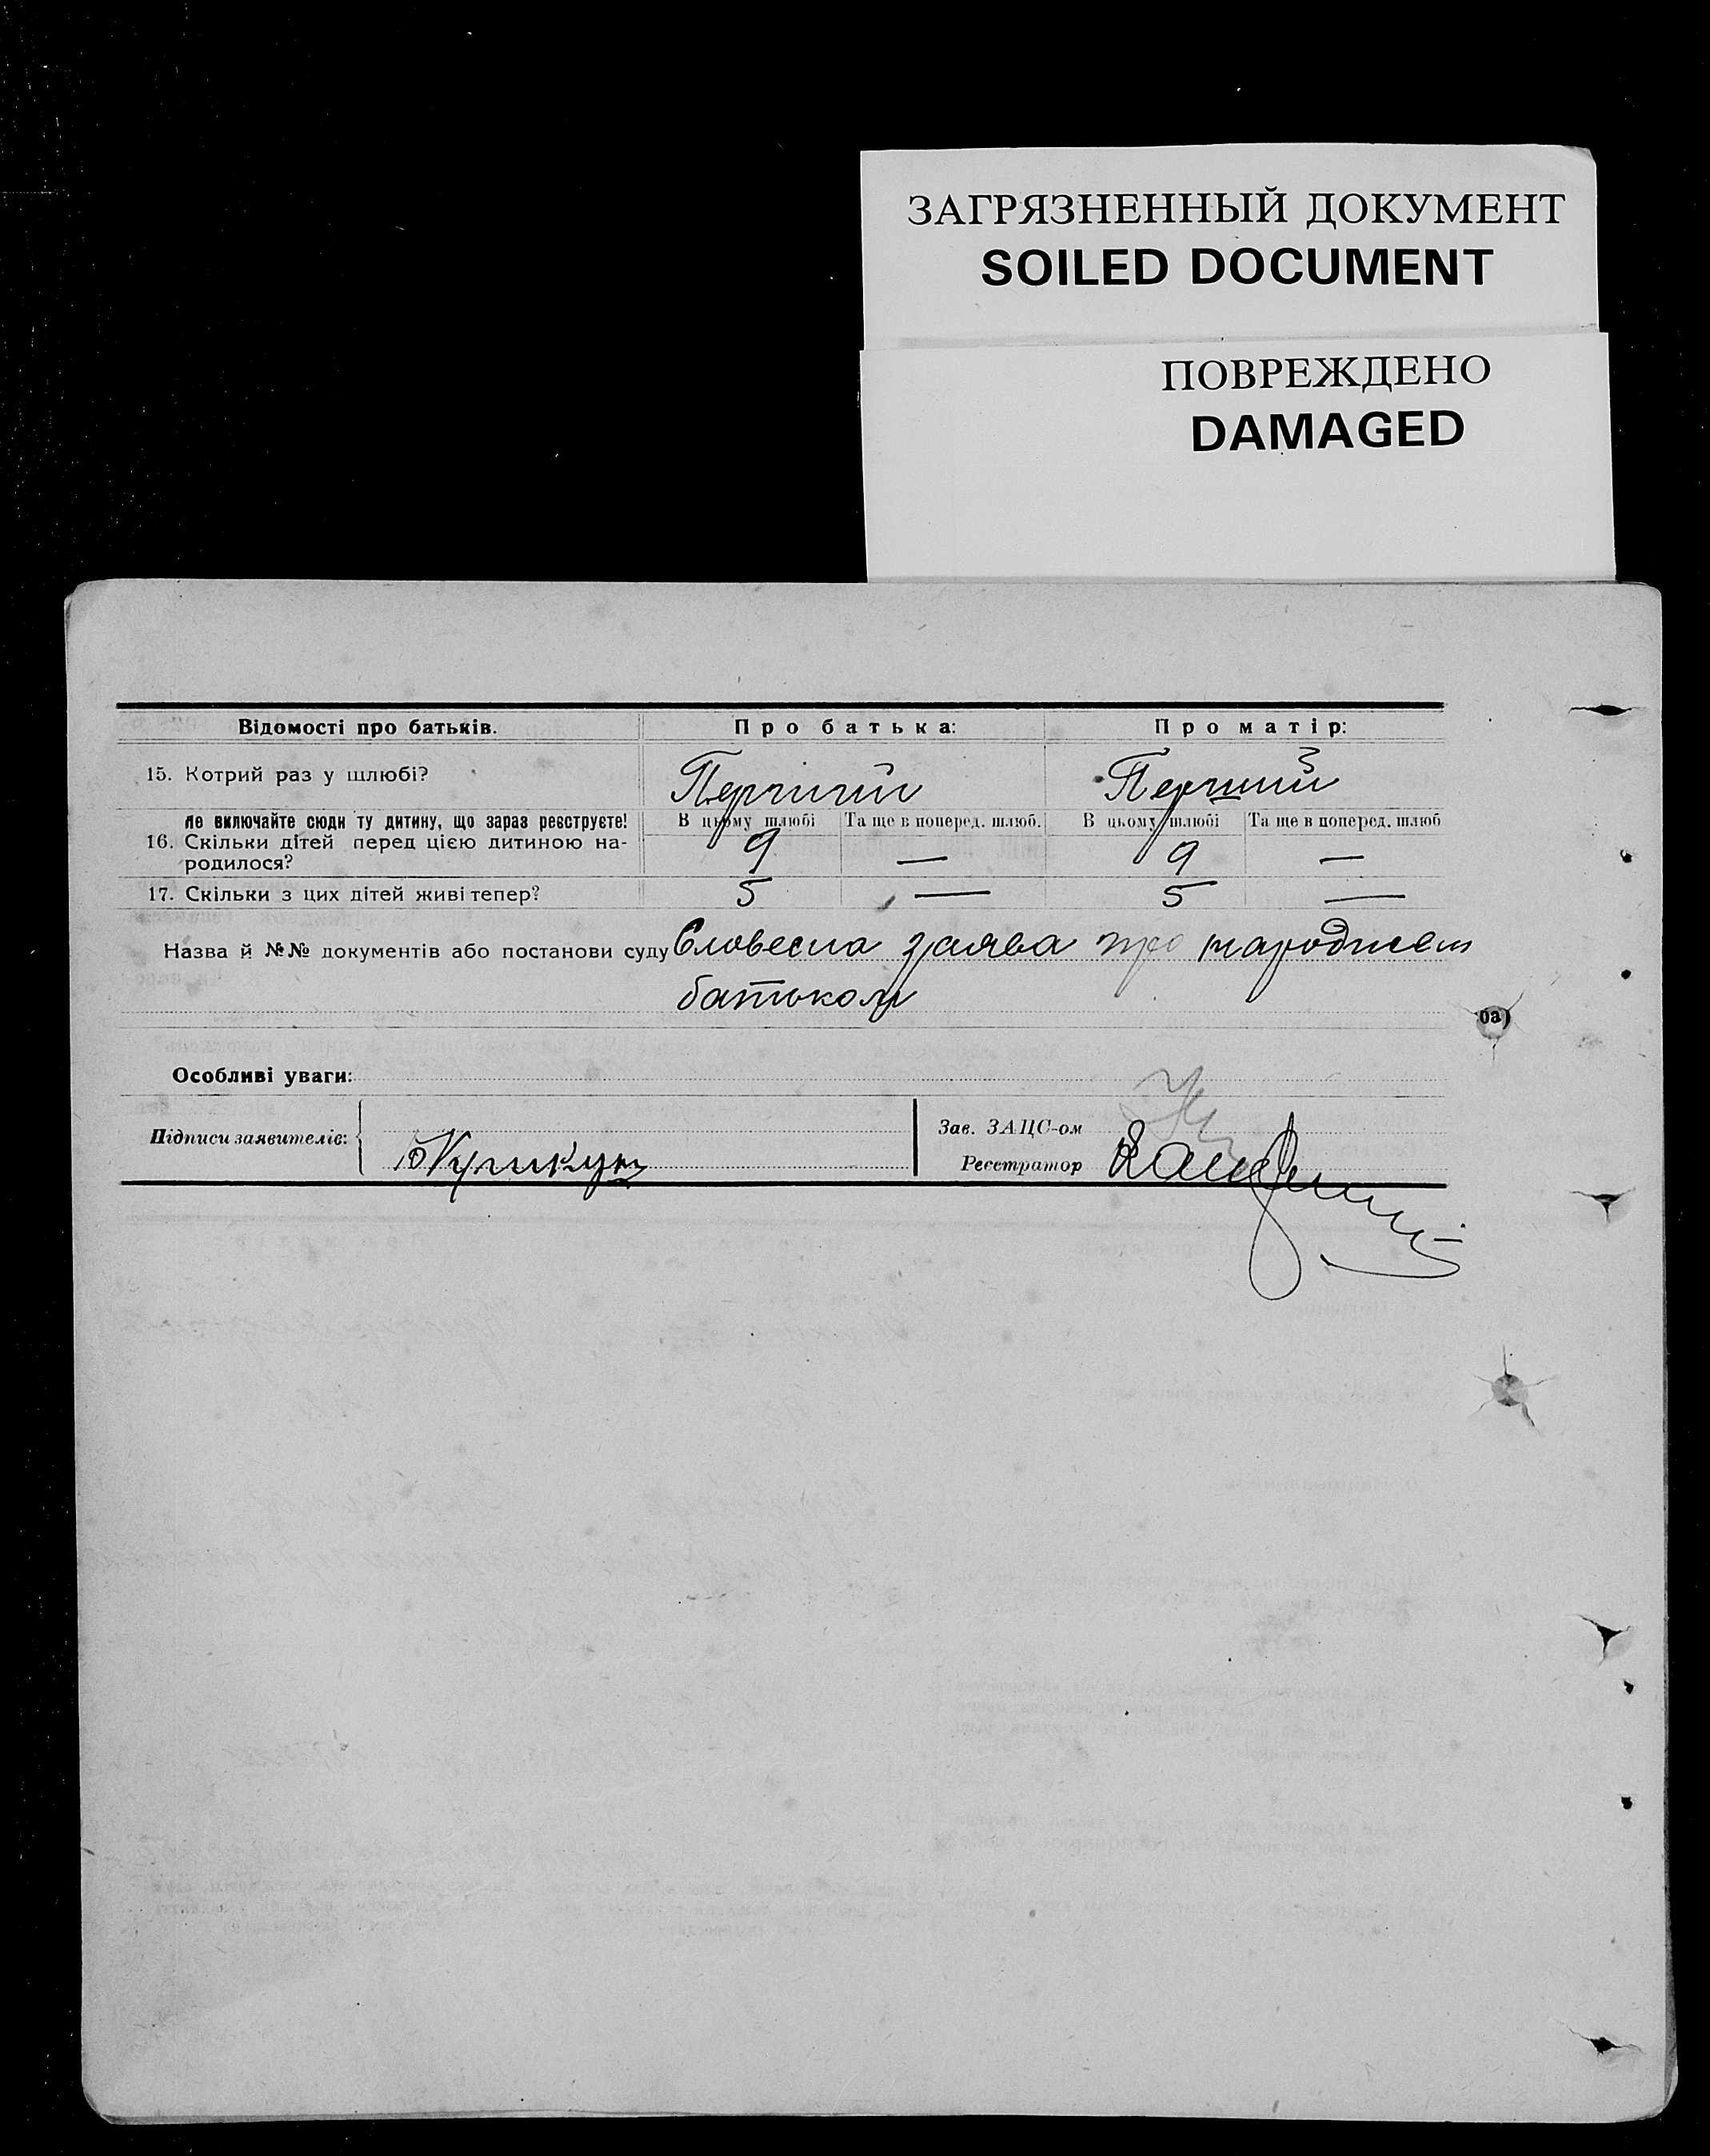 ЗАГРЯЗНЕННЫЙ ДОКУМЕНТ
SOILED DOCUMENT
ПОВРЕЖДЕНО
DAMAGED
Відомості про батьків. Про батька: Про матір:
15. Котрий раз у шлюбі? Перший Перший
Не включайте сюди ту дитину, що зараз реєструєте! В цьому шлюбі Та ще в поперед. шлюб. В цьому шлюбі Та ще в поперед. шлюб
16. Скільки дітей перед цією дитиною на-
родилося? 9 — 9 —
17. Скільки з цих дітей живі тепер? 5 — 5 —
Назва й №№ документів або постанови суду Словесна заява про
батьком
0а)
Особливі уваги:
Підписи заявителів:
Зав. ЗАЦС-ом
Реєстратор